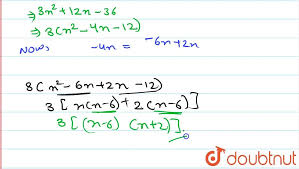 ⇒ 3n²+12n-36
⇒ 3(n²-4n-12)
Now, -4n = -6n+2n
3(n²-6n+2n-12)
3[n(n-6)+2(n-6)]
3[(n-6) (n+2)].
doubtnut